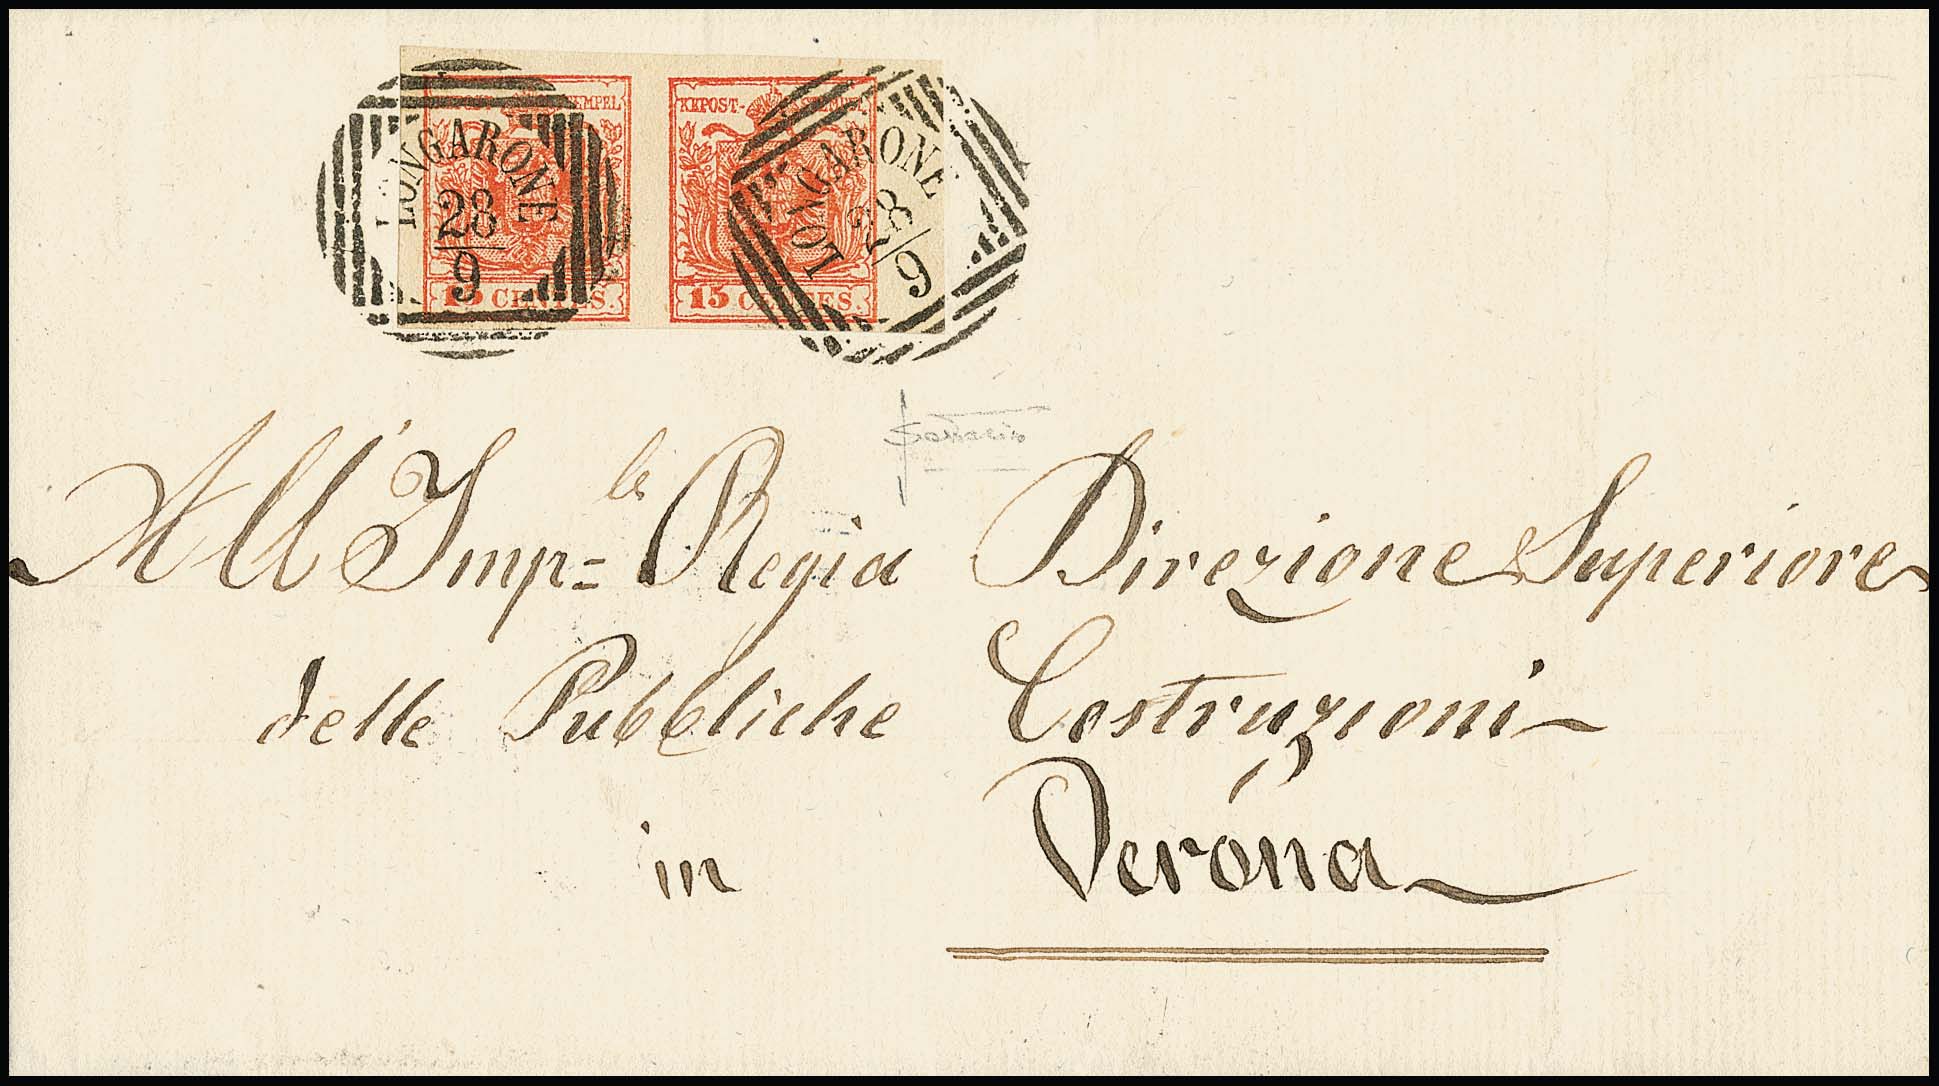 STEMPEL KKPOST- STEMPEL
LONGARONE LONGARONE
28 28
9 9
15 CENTES. 15 CENTES.
All' Imp=le Regia Direzione Superiore
delle Pubbliche Costruzioni
in Verona